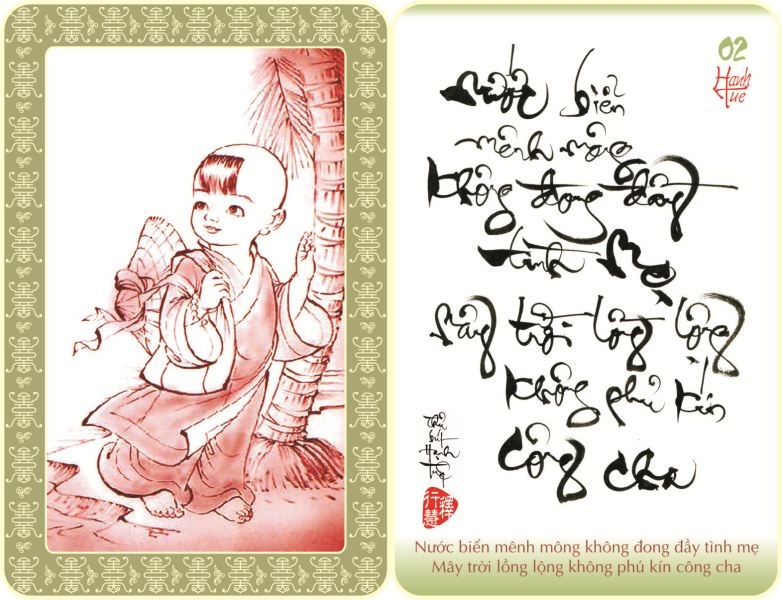 02
Hanh
Hue
nước biển
mênh mông
không đong đầy
tình mẹ
mây trời lồng lộng
không phủ kín
công cha
Thủ bút
Hạnh
Tuệ
釋
行慧
Nước biển mênh mông không đong đầy tình mẹ
Mây trời lồng lộng không phủ kín công cha